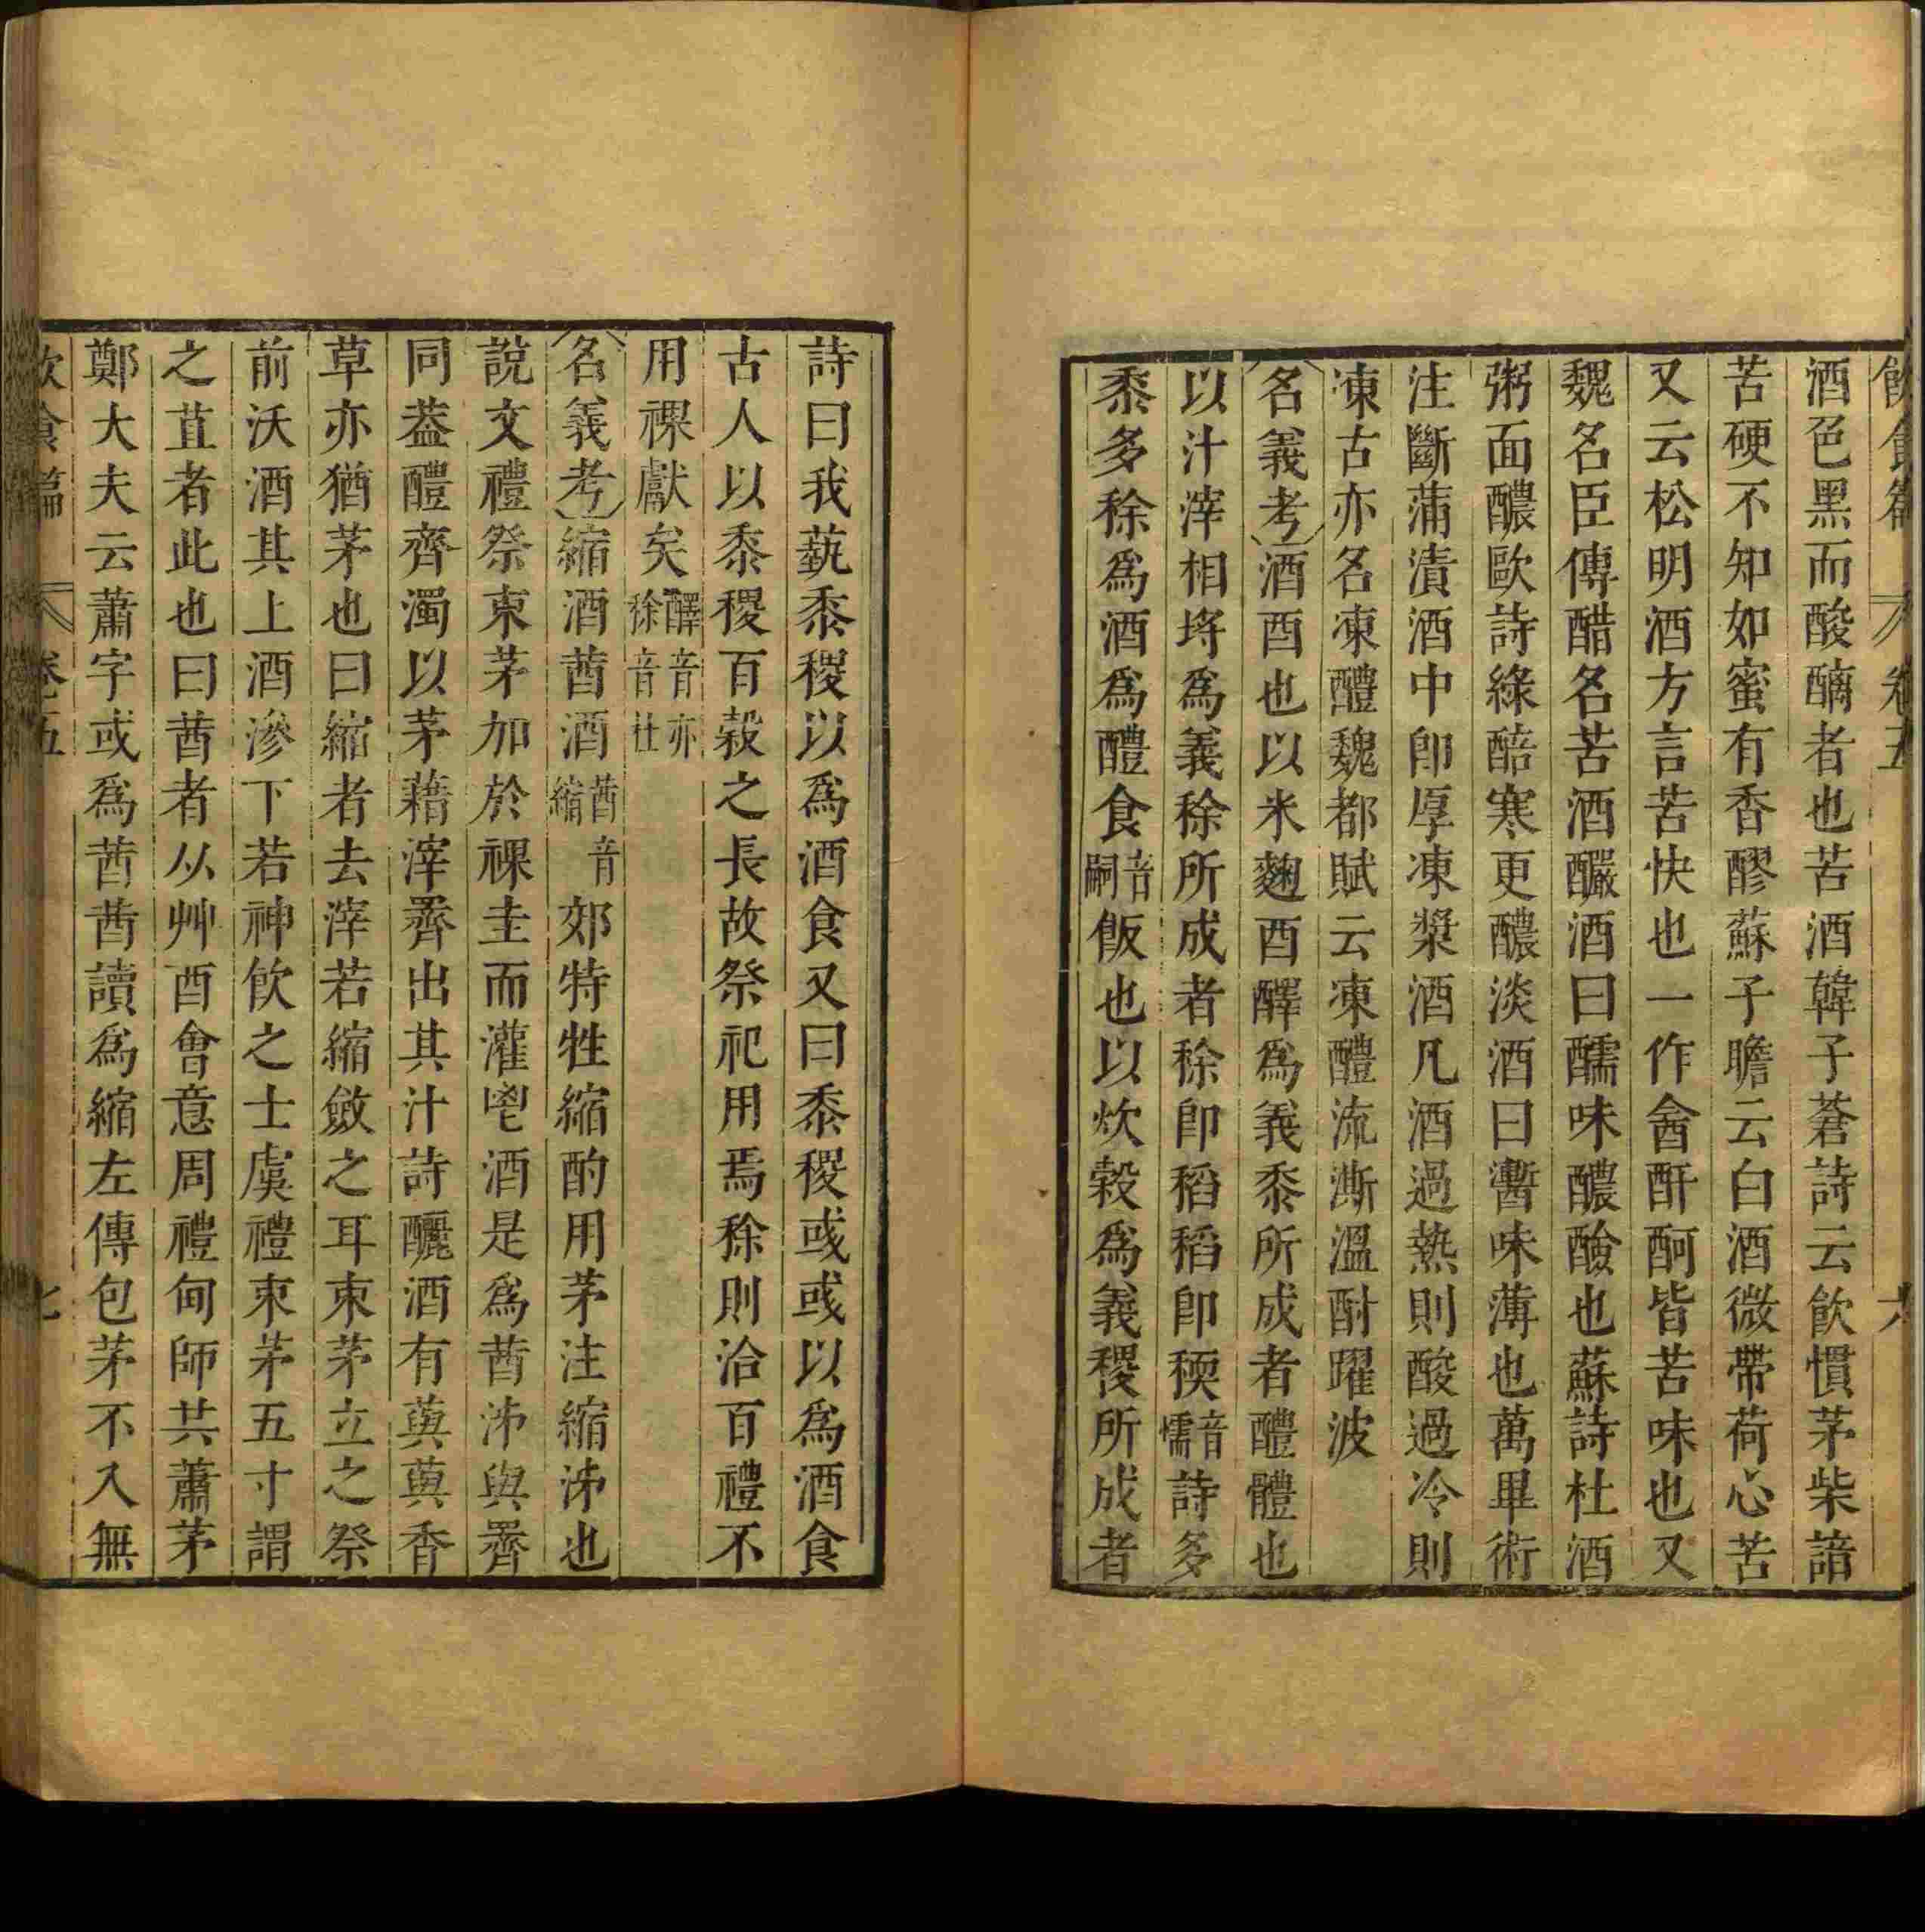 飲食篇 卷五 六
酒色黑而酸醨者也苦酒韓子蒼詩云飮慣茅柴諳
苦硬不知如蜜有香醪蘇子瞻云白酒微帶荷心苦
又云松明酒方言苦快也一作酓酐酠皆苦味也又
魏名臣傳醋名苦酒釅酒曰醹味醲醶也蘇詩杜酒
粥面醲歐詩綠醅寒更醲淡酒曰䤔味薄也萬畢術
注斷蒲漬酒中卽厚凍槳酒凡酒過熱則酸過冷則
凍古亦名凍醴魏都賦云凍醴流澌溫酎躍波
名義考酒酉也以米麴酉醳爲義黍所成者醴體也
以汁滓相埓爲義稌所成者稌卽稻稻卽稬音懦詩多
黍多稌爲酒爲醴食音嗣飯也以炊穀爲義稷所成者
詩曰我蓺黍稷以爲酒食又曰黍稷彧彧以爲酒食
古人以黍稷百穀之長故祭祀用焉稌則洽百禮不
用祼獻矣醳音亦稌音杜
名義考縮酒莤酒莤音縮郊特牲縮酌用茅注縮泲也
說文禮祭束茅加於祼圭而灌鬯酒是爲莤泲與𪗋
同盎醴齊濁以茅藉滓𪗋出其汁詩釃酒有藇藇香
草亦猶茅也曰縮者去滓若縮斂之耳束茅立之祭
前沃酒其上酒滲下若神飮之士虞禮束茅五寸謂
之苴者此也曰莤者从艸酉會意周禮甸師共蕭茅
鄭大夫云蕭字或爲莤莤讀爲縮左傳包茅不入無
飲食篇 卷五 七